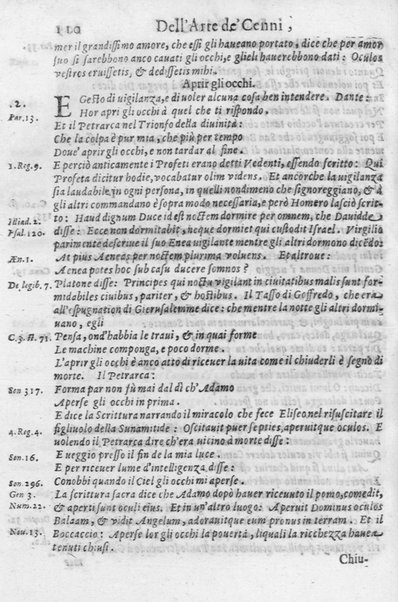 110 Dell'Arte de' Cenni,
mer il grandissimo amore, che essi gli haueano portato, dice che per amor
suo si sarebbono anco cauati gli occhi, e glieli hauerebbono dati: Oculos
vestros eruissetis, & dedissetis mihi.
Aprir gli occhi.
.2. E Gesto di uigilanza, e di uoler alcuna cosa ben intendere. Dante:
Par. 13. Hor apri gli occhi à quel che ti rispondo.
Et il Petrarca nel Trionfo della diuinità:
Che la colpa è pur mia, che più per tempo
Doue' aprir gli occhi, e non tardar al fine.
1. Reg. 9. E perciò anticamente i Profeti erano detti Vedenti, essendo scritto: Qui
Profeta dicitur hodie, vocabatur olim videns. Et ancorche la uigilanza
sia laudabile in ogni persona, in quelli nondimeno che signoreggiano, & à
gli altri commandano è sopra modo necessaria, e però Homero lasciò scrit-
Iliad. 2. to: Haud dignum Duce id est noctem dormire per omnem, che Dauidde
Psal. 120. disse: Ecce non dormitabit, neque dormiet qui custodit Israel. Virgilio
parimente descriue il suo Enea uigilante mentre gli altri dormono dicēdo:
Æn. 1. At pius Aeneas per noctem plurima voluens. Et altroue:
Aenea potes hoc sub casu ducere somnos?
De legib. 7. Platone disse: Principes qui noctu vigilant in ciuitatibus malis sunt for-
midabiles ciuibus, pariter, & hostibus. Il Tasso di Goffredo, che era
all'espugnation di Gierusalemme dice: che mentre la notte gli altri dormi-
uano, egli
C. 3. st. 71. Pensa, ond'habbia le traui, & in quai forme
Le machine componga, e poco dorme.
L'aprir gli occhi è anco atto di riceuer la uita come il chiuderli è segno di
morte. Il Petrarca:
Son 317. Forma par non fù mai dal dì ch'Adamo
Aperse gli occhi in prima.
E dice la Scrittura narrando il miracolo che fece Eliseo nel risuscitare il
4. Reg. 4. figliuolo della Sunamitide: Oscitauit puer septies, aperuitque oculos. E
uolendo il Petrarca dire ch'era uicino à morte disse:
Son. 16. E ueggio presso il fin de la mia luce.
E per riceuer lume d'intelligenza disse:
Son. 296. Conobbi quando il Ciel gli occhi mi aperse.
Gen 3. La scrittura sacra dice che Adamo dopò hauer riceuuto il pomo, comedit,
Num. 22. & aperti sunt oculi eius. Et in un'altro luogo: Aperuit Dominus oculos
Balaam, & vidit Angelum, adorauitque eum pronus in terram. Et il
Nou. 13. Boccaccio: Aperse lor gli occhi la pouertà, quali la ricchezza hauea
tenuti chiusi.
Chiu-